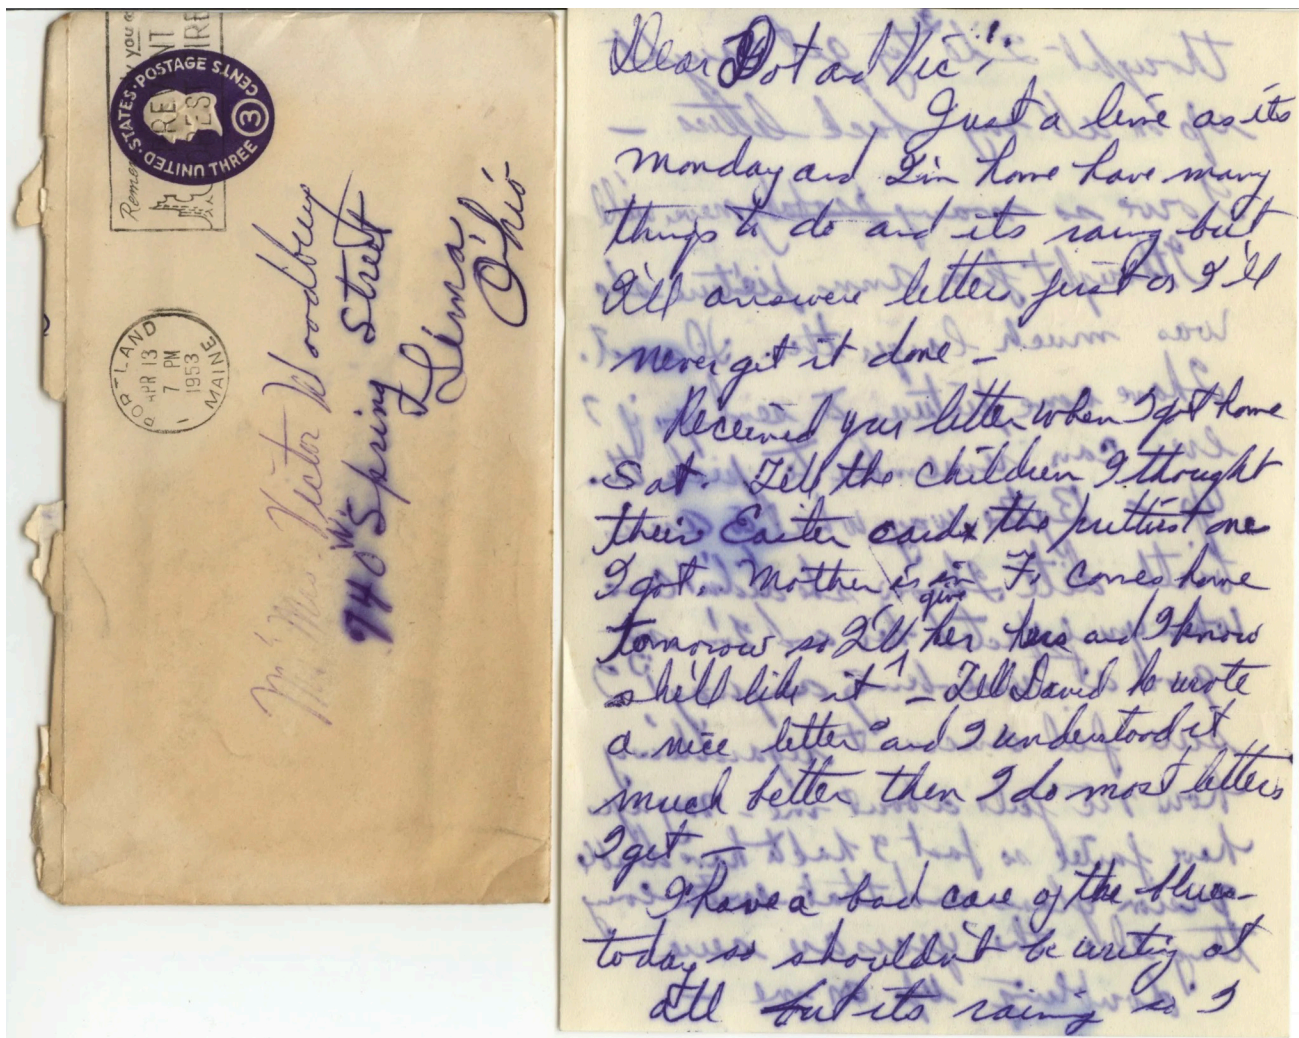 Remem
you
RE
ES
NT
IRE
UNITED STATES POSTAGE
THREE 3 CENTS
PORTLAND
APR 13
7 PM
1953
MAINE
1
Mr & Mrs. Victor W Woodbury
940 W. Spring Street
Lima,
Ohio
Dear Dot and Vic!,
Just a line as its
Monday and I'm home have many
things to do and its rainy but
I'll answere letters first or I'll
never get it done –
Received your letter when I got home
Sat. Tell the children I thought
their Easter card the prettiest one
I got. Mother is in Fr. comes home
tomorow so I'll give her hers and I know
she'll like it – Tell David he wrote
a nice letter and I understood it
much better then I do most letters
I get –
I have a bad case of the blues –
today so shouldn't be writing at
all but its raining so I